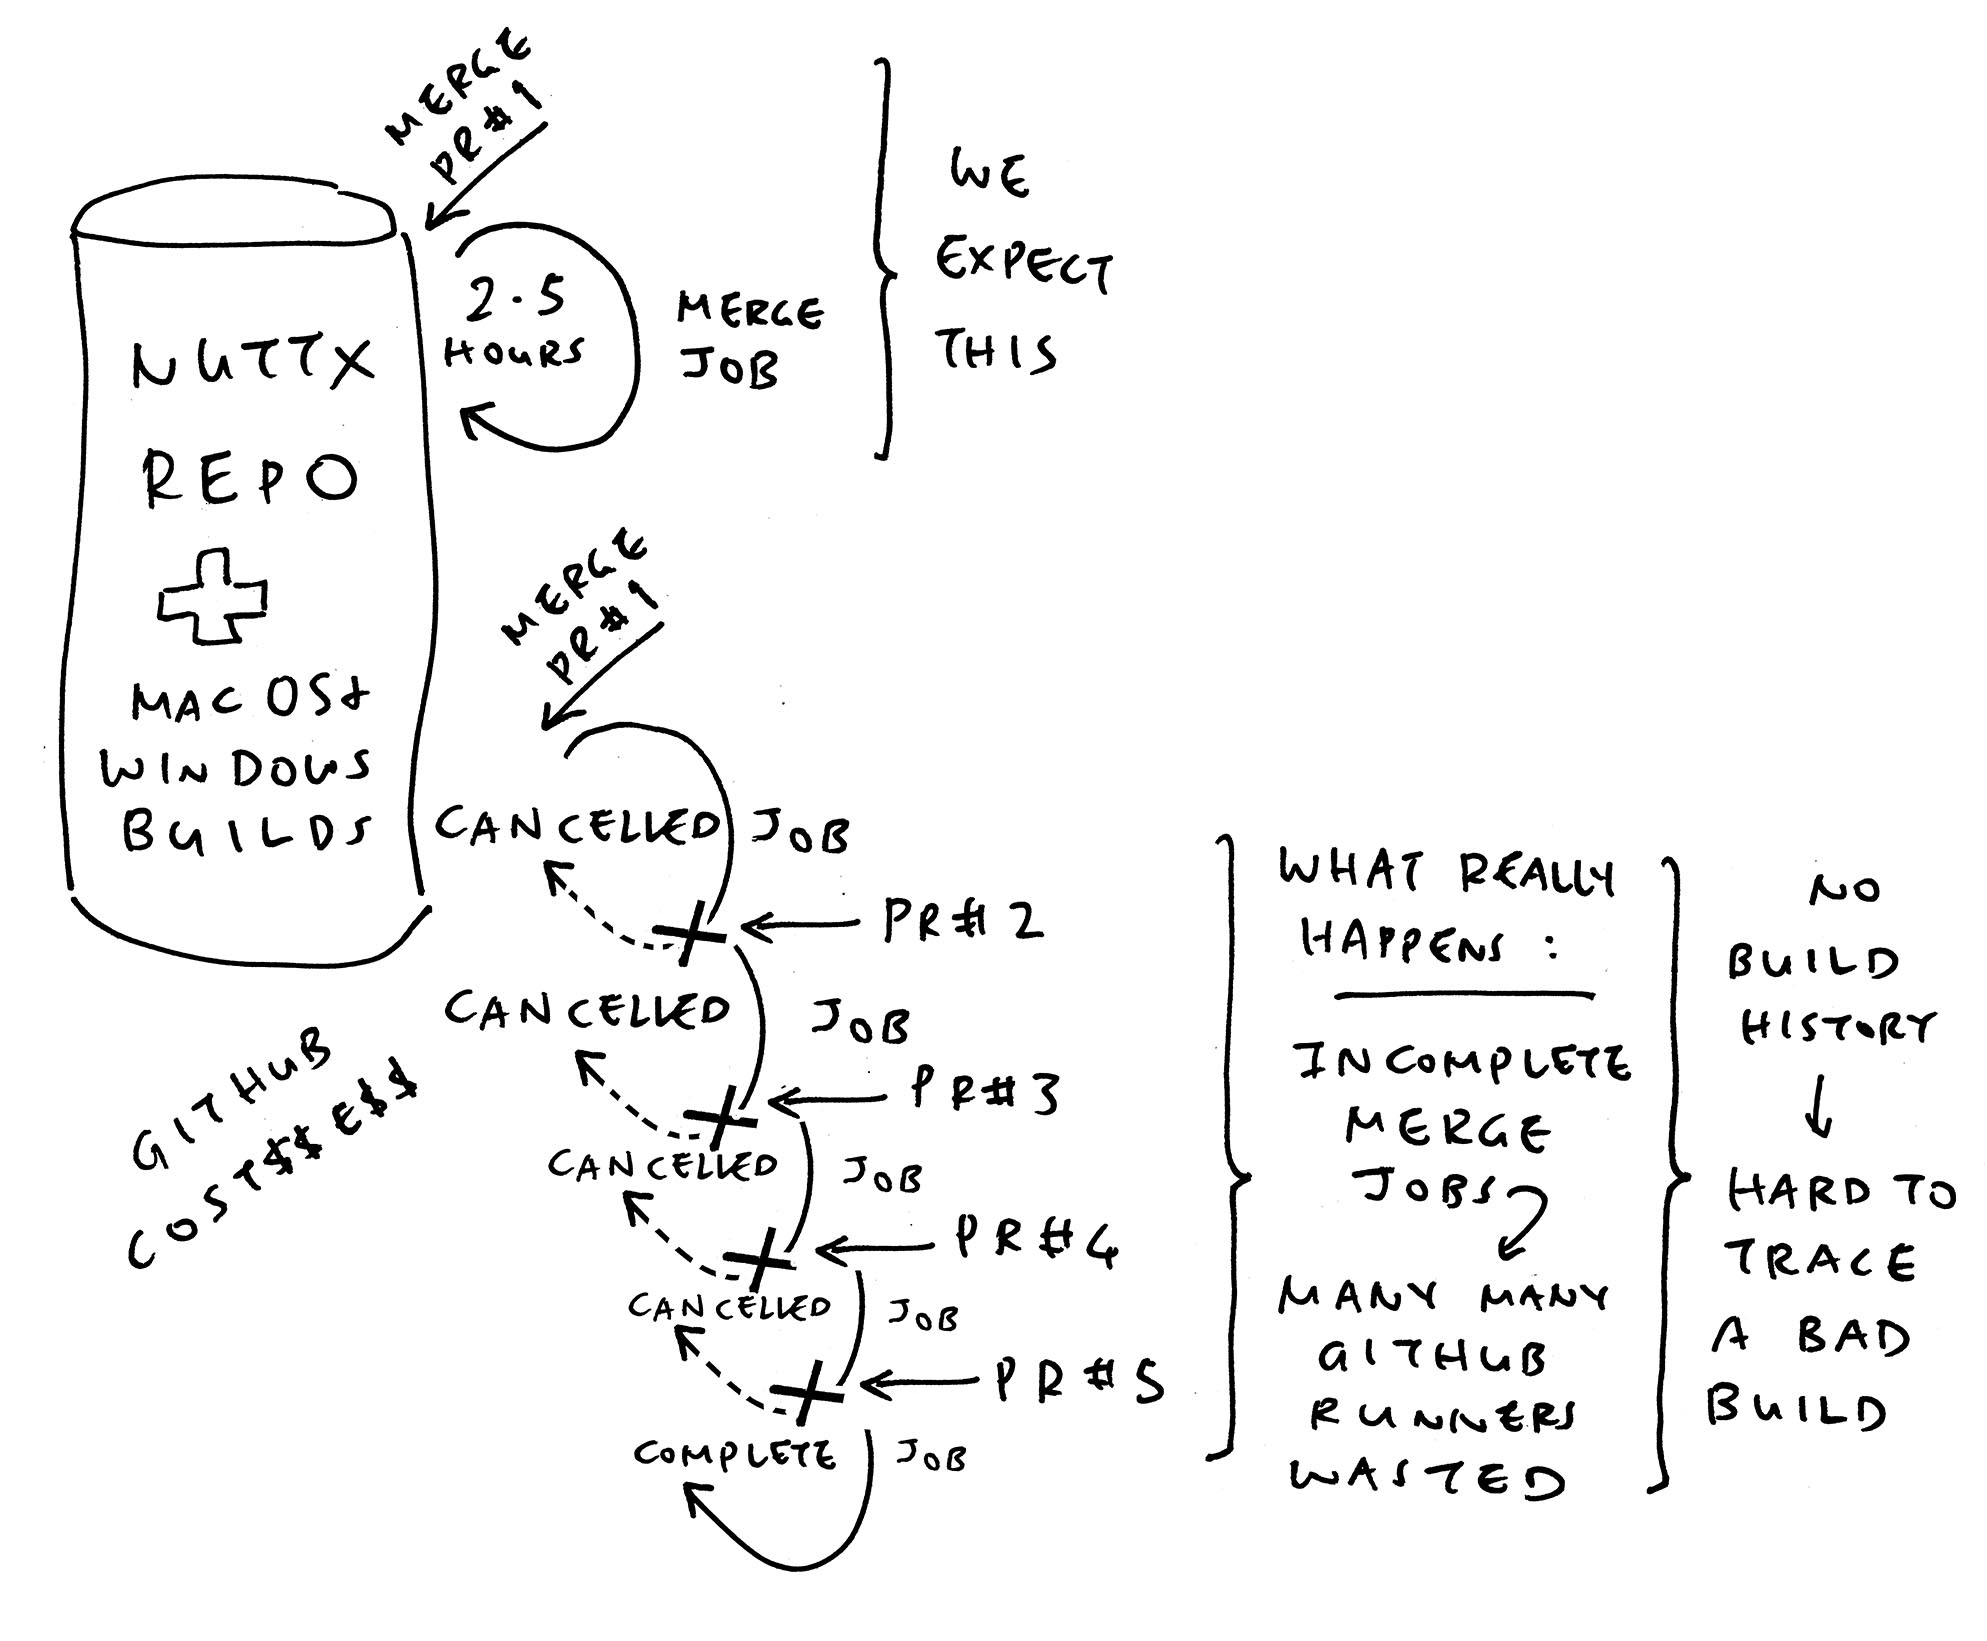 MERGE
PR#1
NUTTX
REPO
MAC OS+
WINDOWS
BUILDS
2.5
HOURS
MERGE
JOB
WE
EXPECT
THIS
MERGE
PR#1
CANCELLED JOB
PR#2
CANCELLED JOB
PR#3
CANCELLED JOB
PR#4
CANCELLED JOB
PR#5
COMPLETE JOB
GITHUB
COST$$ E$$
WHAT REALLY
HAPPENS :
INCOMPLETE
MERGE
JOBS
MANY MANY
GITHUB
RUNNERS
WASTED
NO
BUILD
HISTORY
HARD TO
TRACE
A BAD
BUILD